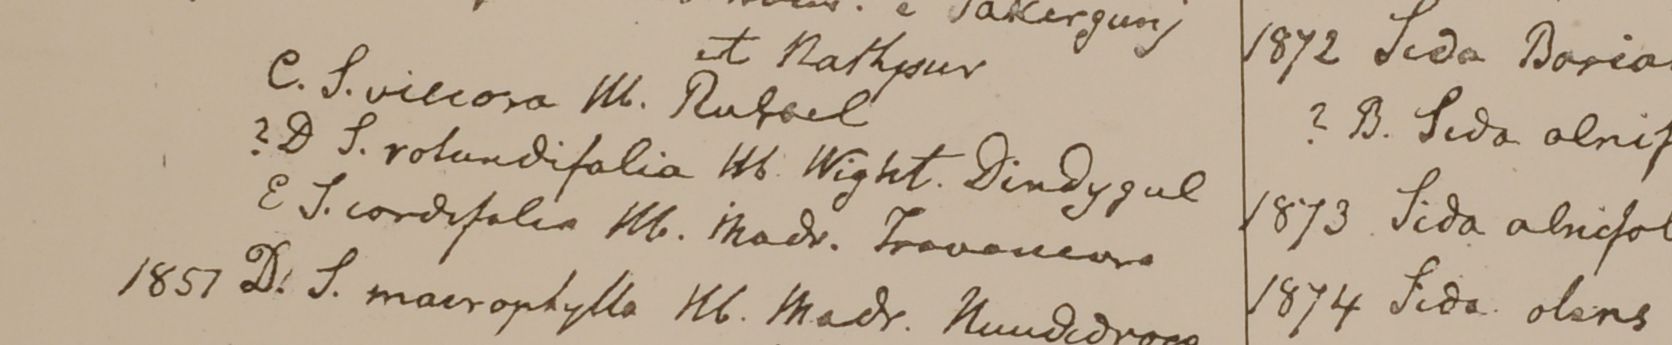 e Jakergunj
et Nathpur
C. S. viscosa Hb. Russel
? D S. rotundifolia Hb. Wight. Dindygul
E S. cordifolia Hb. Madr. Travancora
1851 D. S. macrophylla Hb. Madr.
1872 Sida
? B. Sida alnif
1873 Sida alnifol
1874 Sida olens